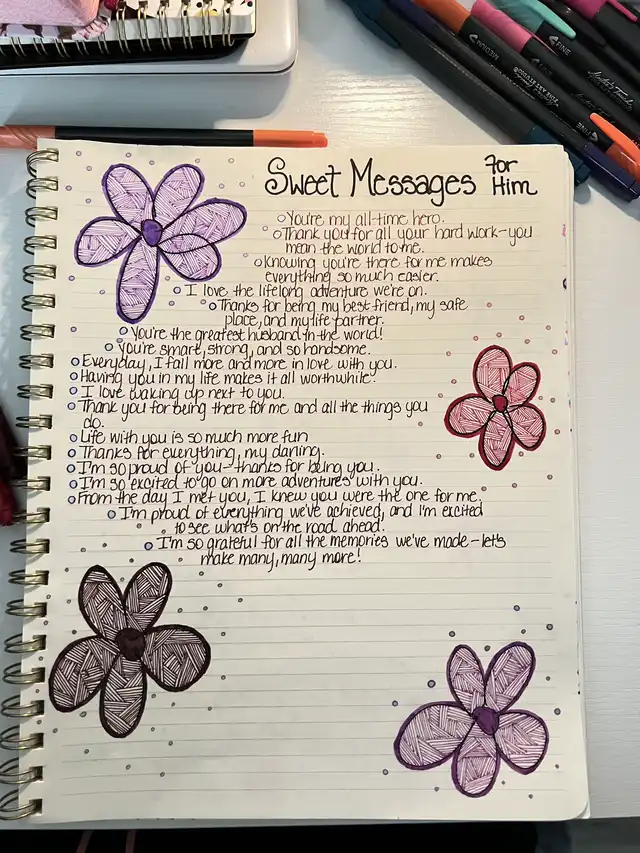 Sweet Messages for Him
You're my all-time hero.
Thank you for all your hard work-you
mean the world to me.
Knowing you're there for me makes
everything so much easier.
I love the lifelong adventure we're on.
Thanks for being my best friend, my safe
place, and my life partner.
You're the greatest husband in the world!
You're smart, strong, and so handsome.
Everyday, I fall more and more in love with you.
Having you in my life makes it all worthwhile.
I love waking up next to you.
Thank you for being there for me and all the things you
do.
Life with you is so much more fun
Thanks for everything, my darling.
I'm so proud of you-thanks for being you.
I'm so excited to go on more adventures with you.
From the day I met you, I knew you were the one for me.
I'm proud of everything we've achieved, and I'm excited
to see what's on the road ahead.
I'm so grateful for all the memories we've made-let's
make many, many more!
MEDIUM
FINE
FINE
FINE